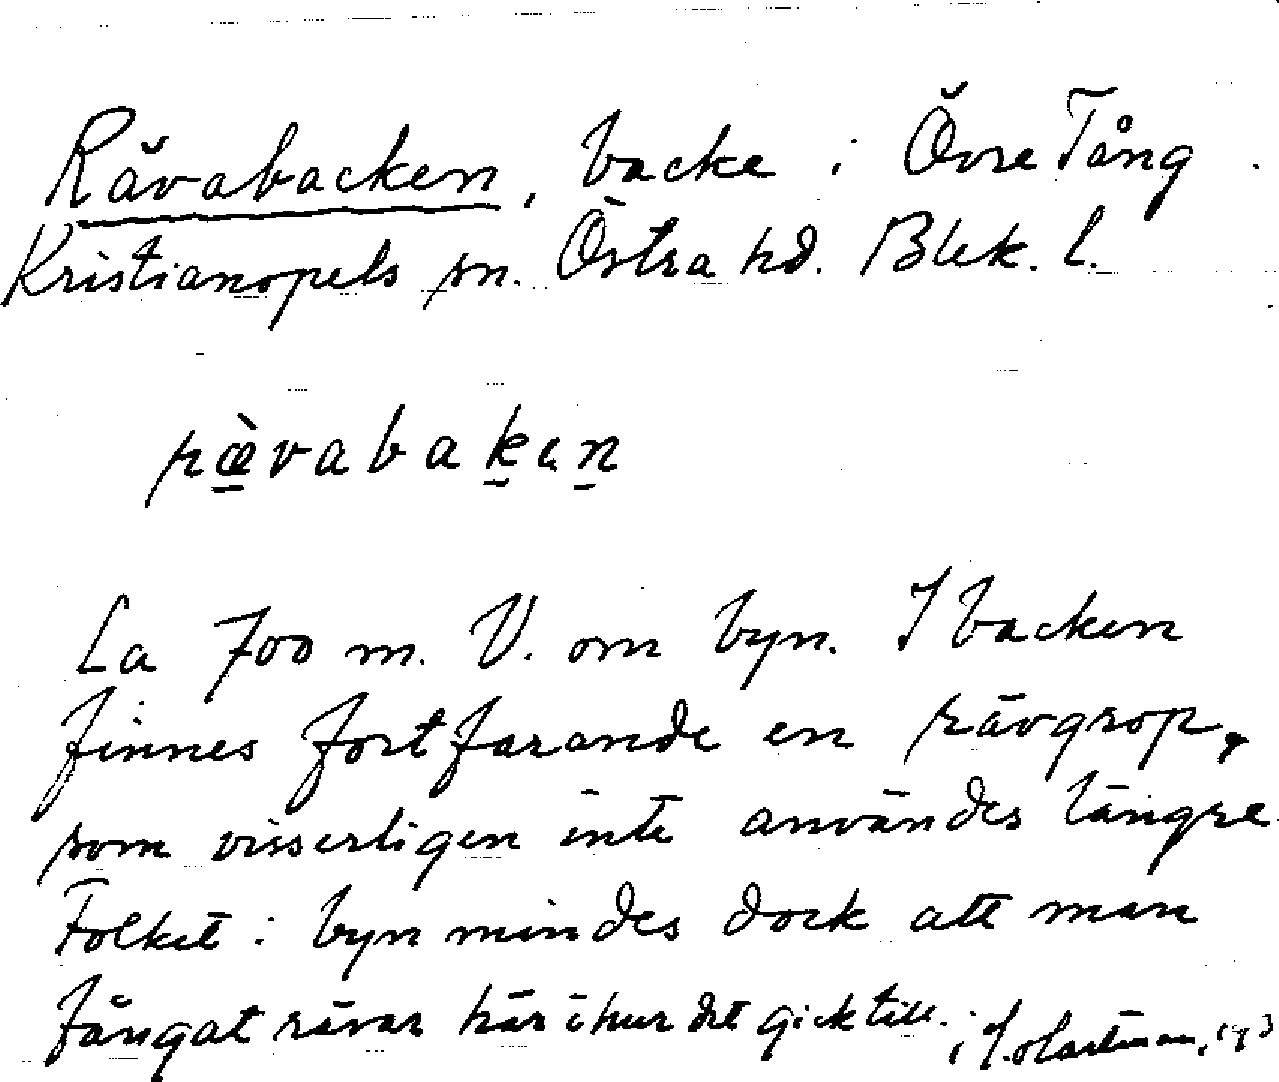 Rävabacken, backe i Övre Tång.
Kristianopels sn. Östra hd. Blek. l.
rævabakan
La 700 m. V. om byn. I backen
finnes fortfarande en rävgrop,
som visserligen inte användes längre
Folket i byn mindes dock att man
fångat rävar här i hur det gick till.